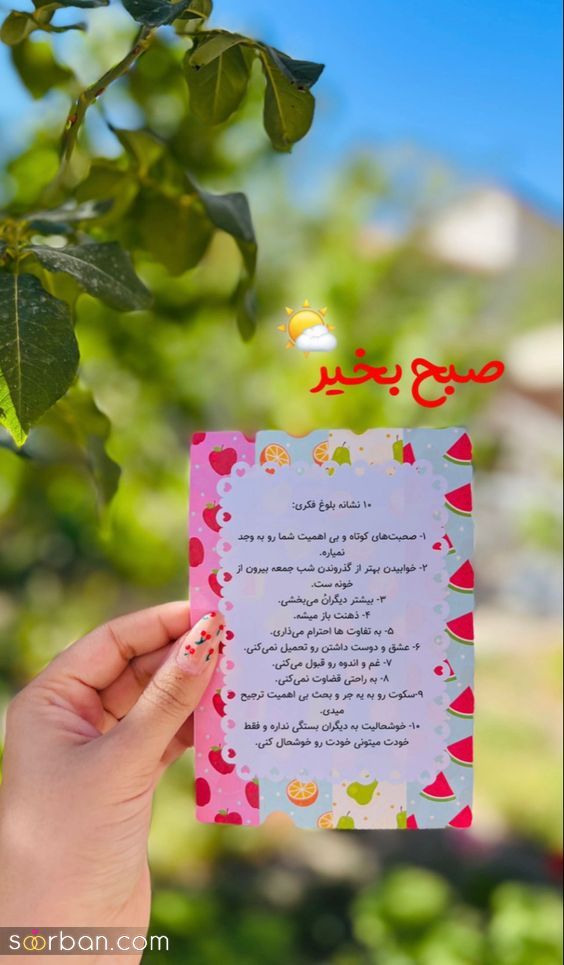 صبح بخیر
۱۰ نشانه بلوغ فکری:
۱- صحبت‌های کوتاه و بی اهمیت شما رو به وجد
نمیاره.
۲- خوابیدن بهتر از گذروندن شب جمعه بیرون از
خونه ست.
۳- بیشتر دیگرانُ می‌بخشی.
۴- ذهنت باز میشه.
۵- به تفاوت ها احترام می‌ذاری.
۶- عشق و دوست داشتن رو تحمیل نمی‌کنی.
۷- غم و اندوه رو قبول می‌کنی.
۸- به راحتی قضاوت نمی‌کنی.
۹-سکوت رو به یه جر و بحث بی اهمیت ترجیح
میدی.
۱۰- خوشحالیت به دیگران بستگی نداره و فقط
خودت میتونی خودت رو خوشحال کنی.
soorban.com